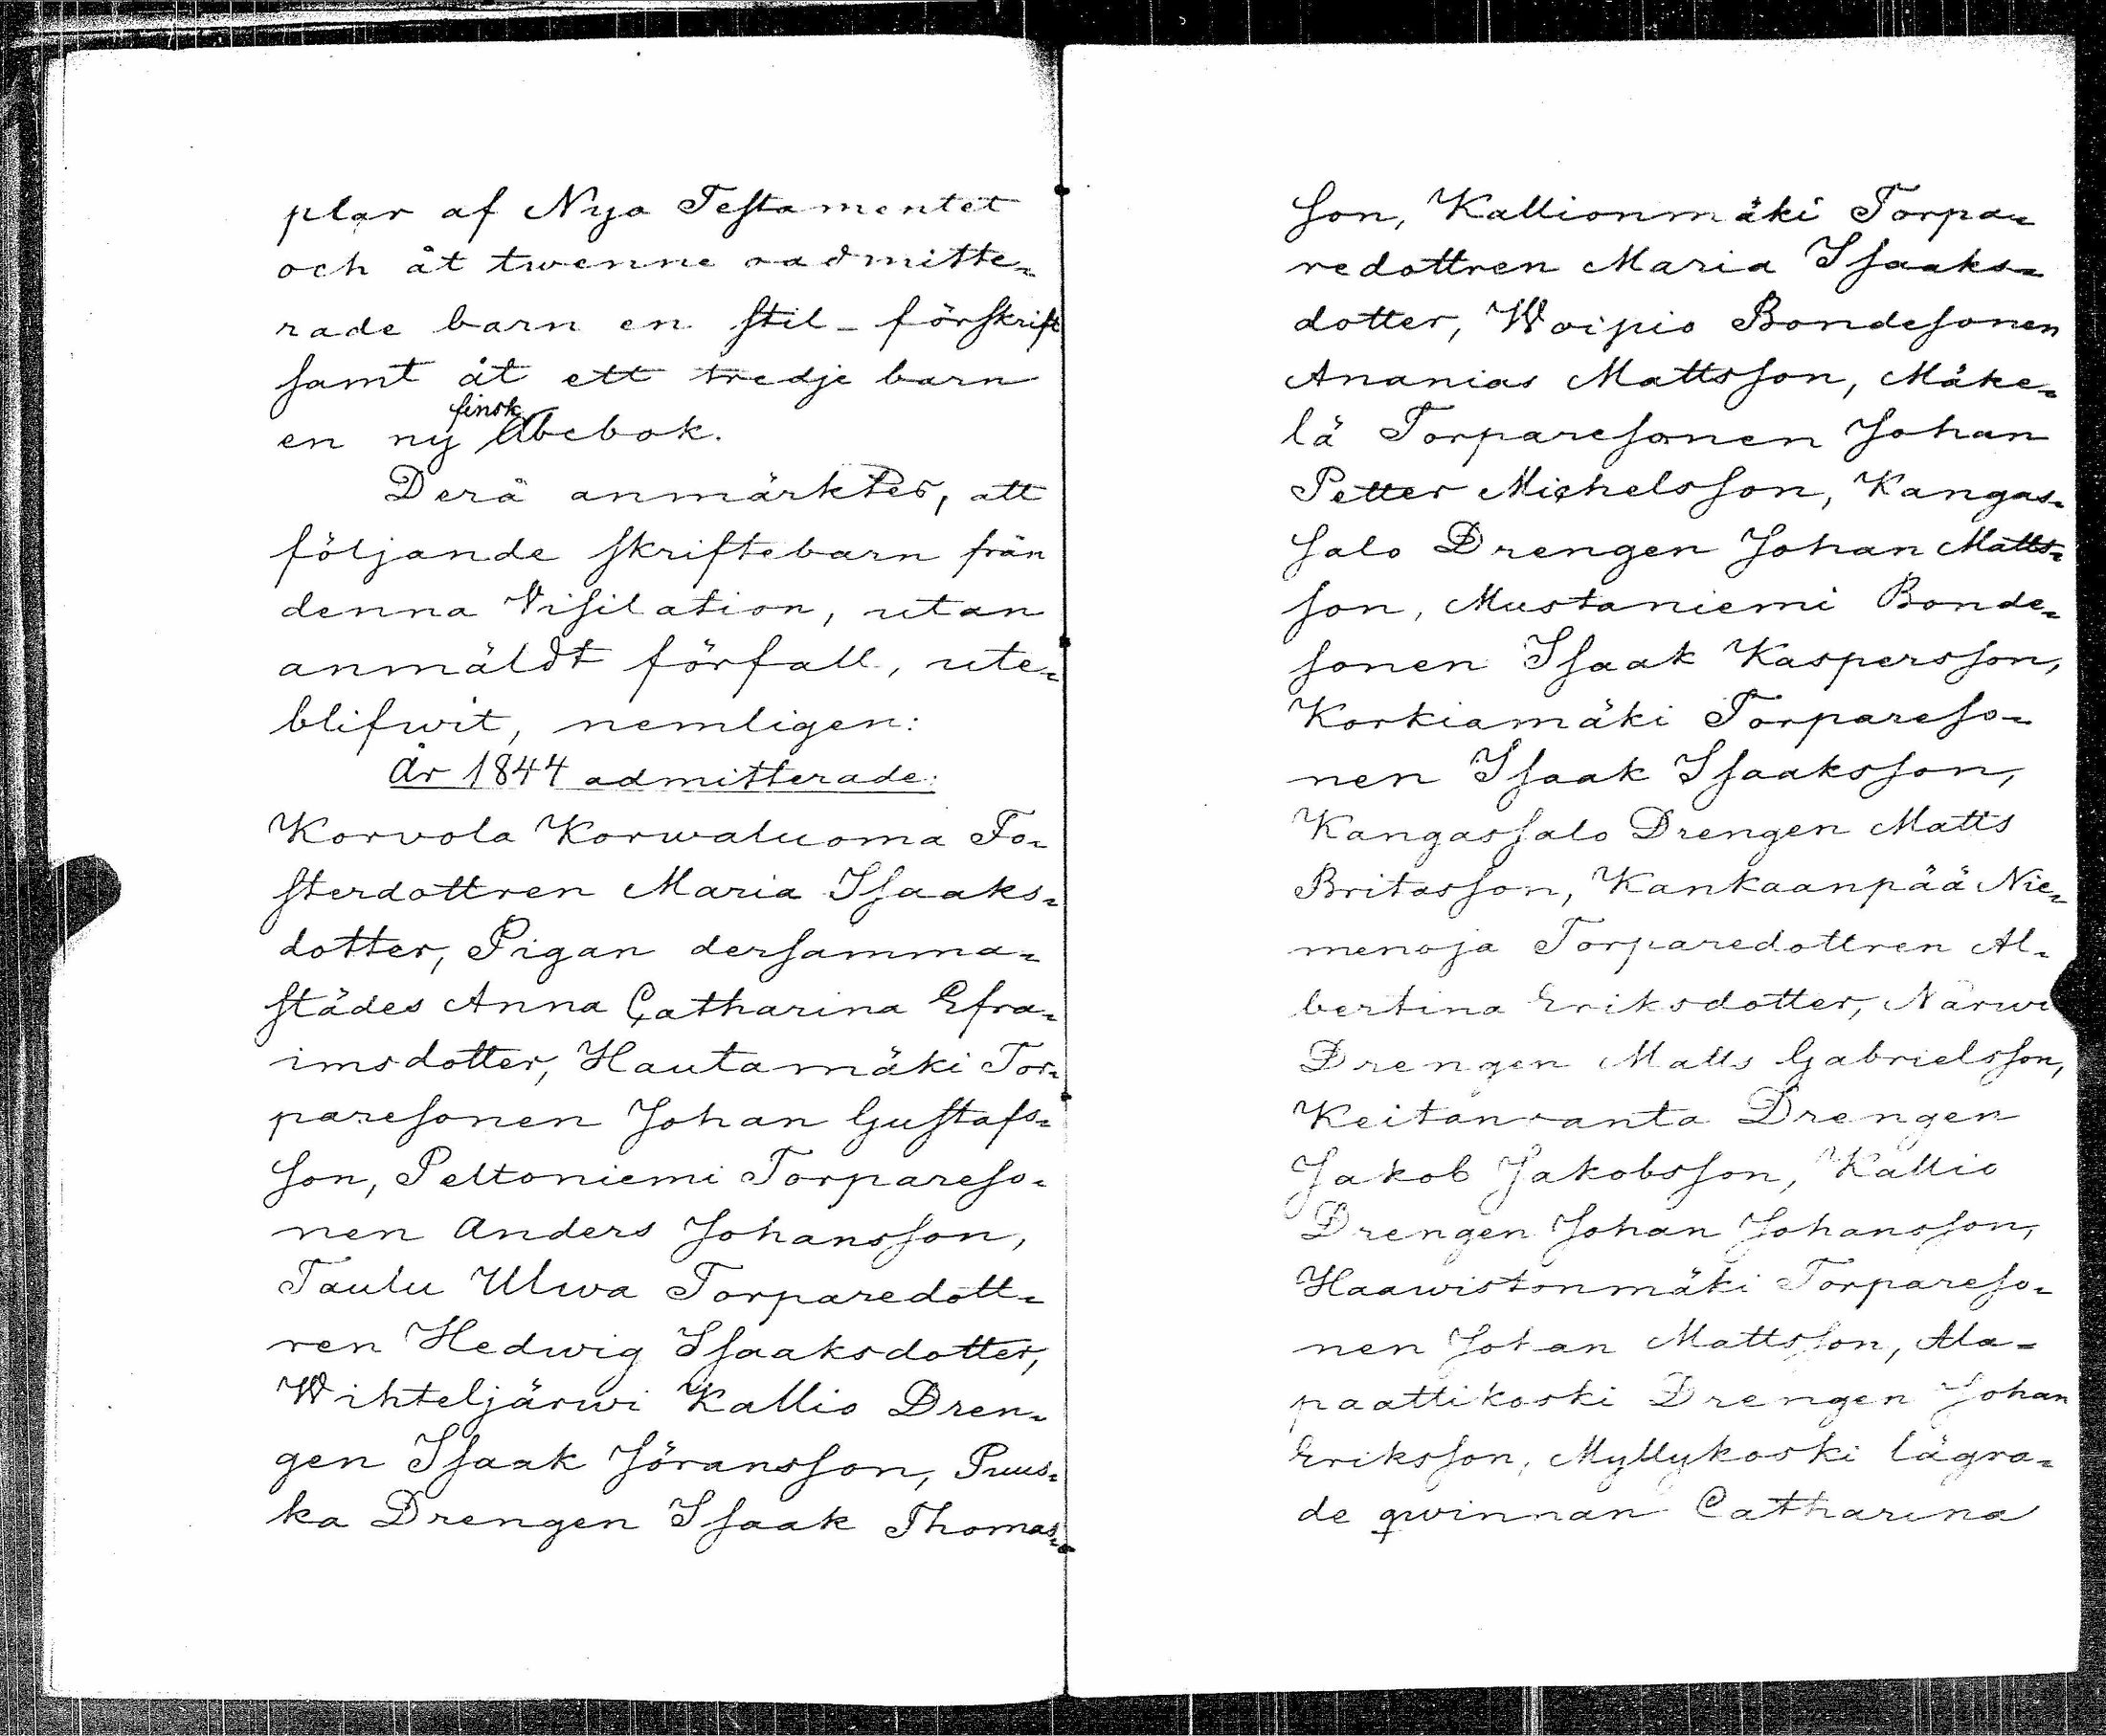 plar af Nya Testamentet
och åt twenne oadmitte=
rade barn en stil-förskrift
samt åt ett tredje barn
finsk
en ny Abcbok.
Derå anmärktes, att
följande skriftebarn från
denna Visitation, utan
anmäldt förfall, ute=
blifwit, nemligen:
År 1844 admitterade:
Korvola Korwaluoma Fo=
sterdottren Maria Isaaks=
dotter, Pigan dersamma=
städes Anna Catharina Efra=
imsdotter, Hautamäki Tor=
paresonen Johan Gustafs=
son, Peltoniemi Torpareso=
nen Anders Johansson,
Taulu Ulwa Torparedott=
ren Hedwig Isaaksdotter,
Wihteljärwi Kallio Dren=
gen Isaak Jöransson, Puus=
ka Drengen Isaak Thomas=
son, Kallionmäki Torpa=
redottren Maria Isaaks=
dotter, Woipio Bondesonen
Ananias Mattsson, Mäke=
lä Torparesonen Johan
Petter Michelsson, Kangas=
salo Drengen Johan Matts=
son, Mustaniemi Bonde=
sonen Isaak Kaspersson,
Korkiamäki Torpareso=
nen Isaak Isaaksson,
Kangassalo Drengen Matts
Britasson, Kankaanpää Nie=
menoja Torparedottren Al=
bertina Eriksdotter, Närwi
Drengen Matts Gabrielsson,
Keitanranta Drengen
Jakob Jakobsson, Kallio
Drengen Johan Johansson,
Haawistonmäki Torpareso=
nen Johan Mattsson, Ala=
paattikoski Drengen Johan
Eriksson, Myllykoski lägra=
de qwinnan Catharina